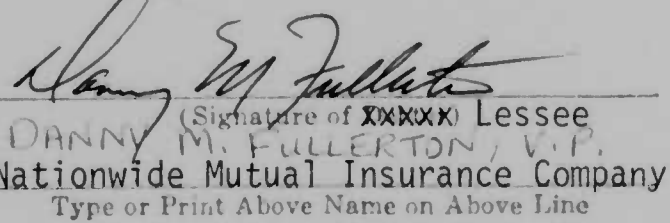 Danny M Fullerton
(Signature of xxxxxx) Lessee
DANNY M. FULLERTON, V.P.
Nationwide Mutual Insurance Company
Type or Print Above Name on Above Line